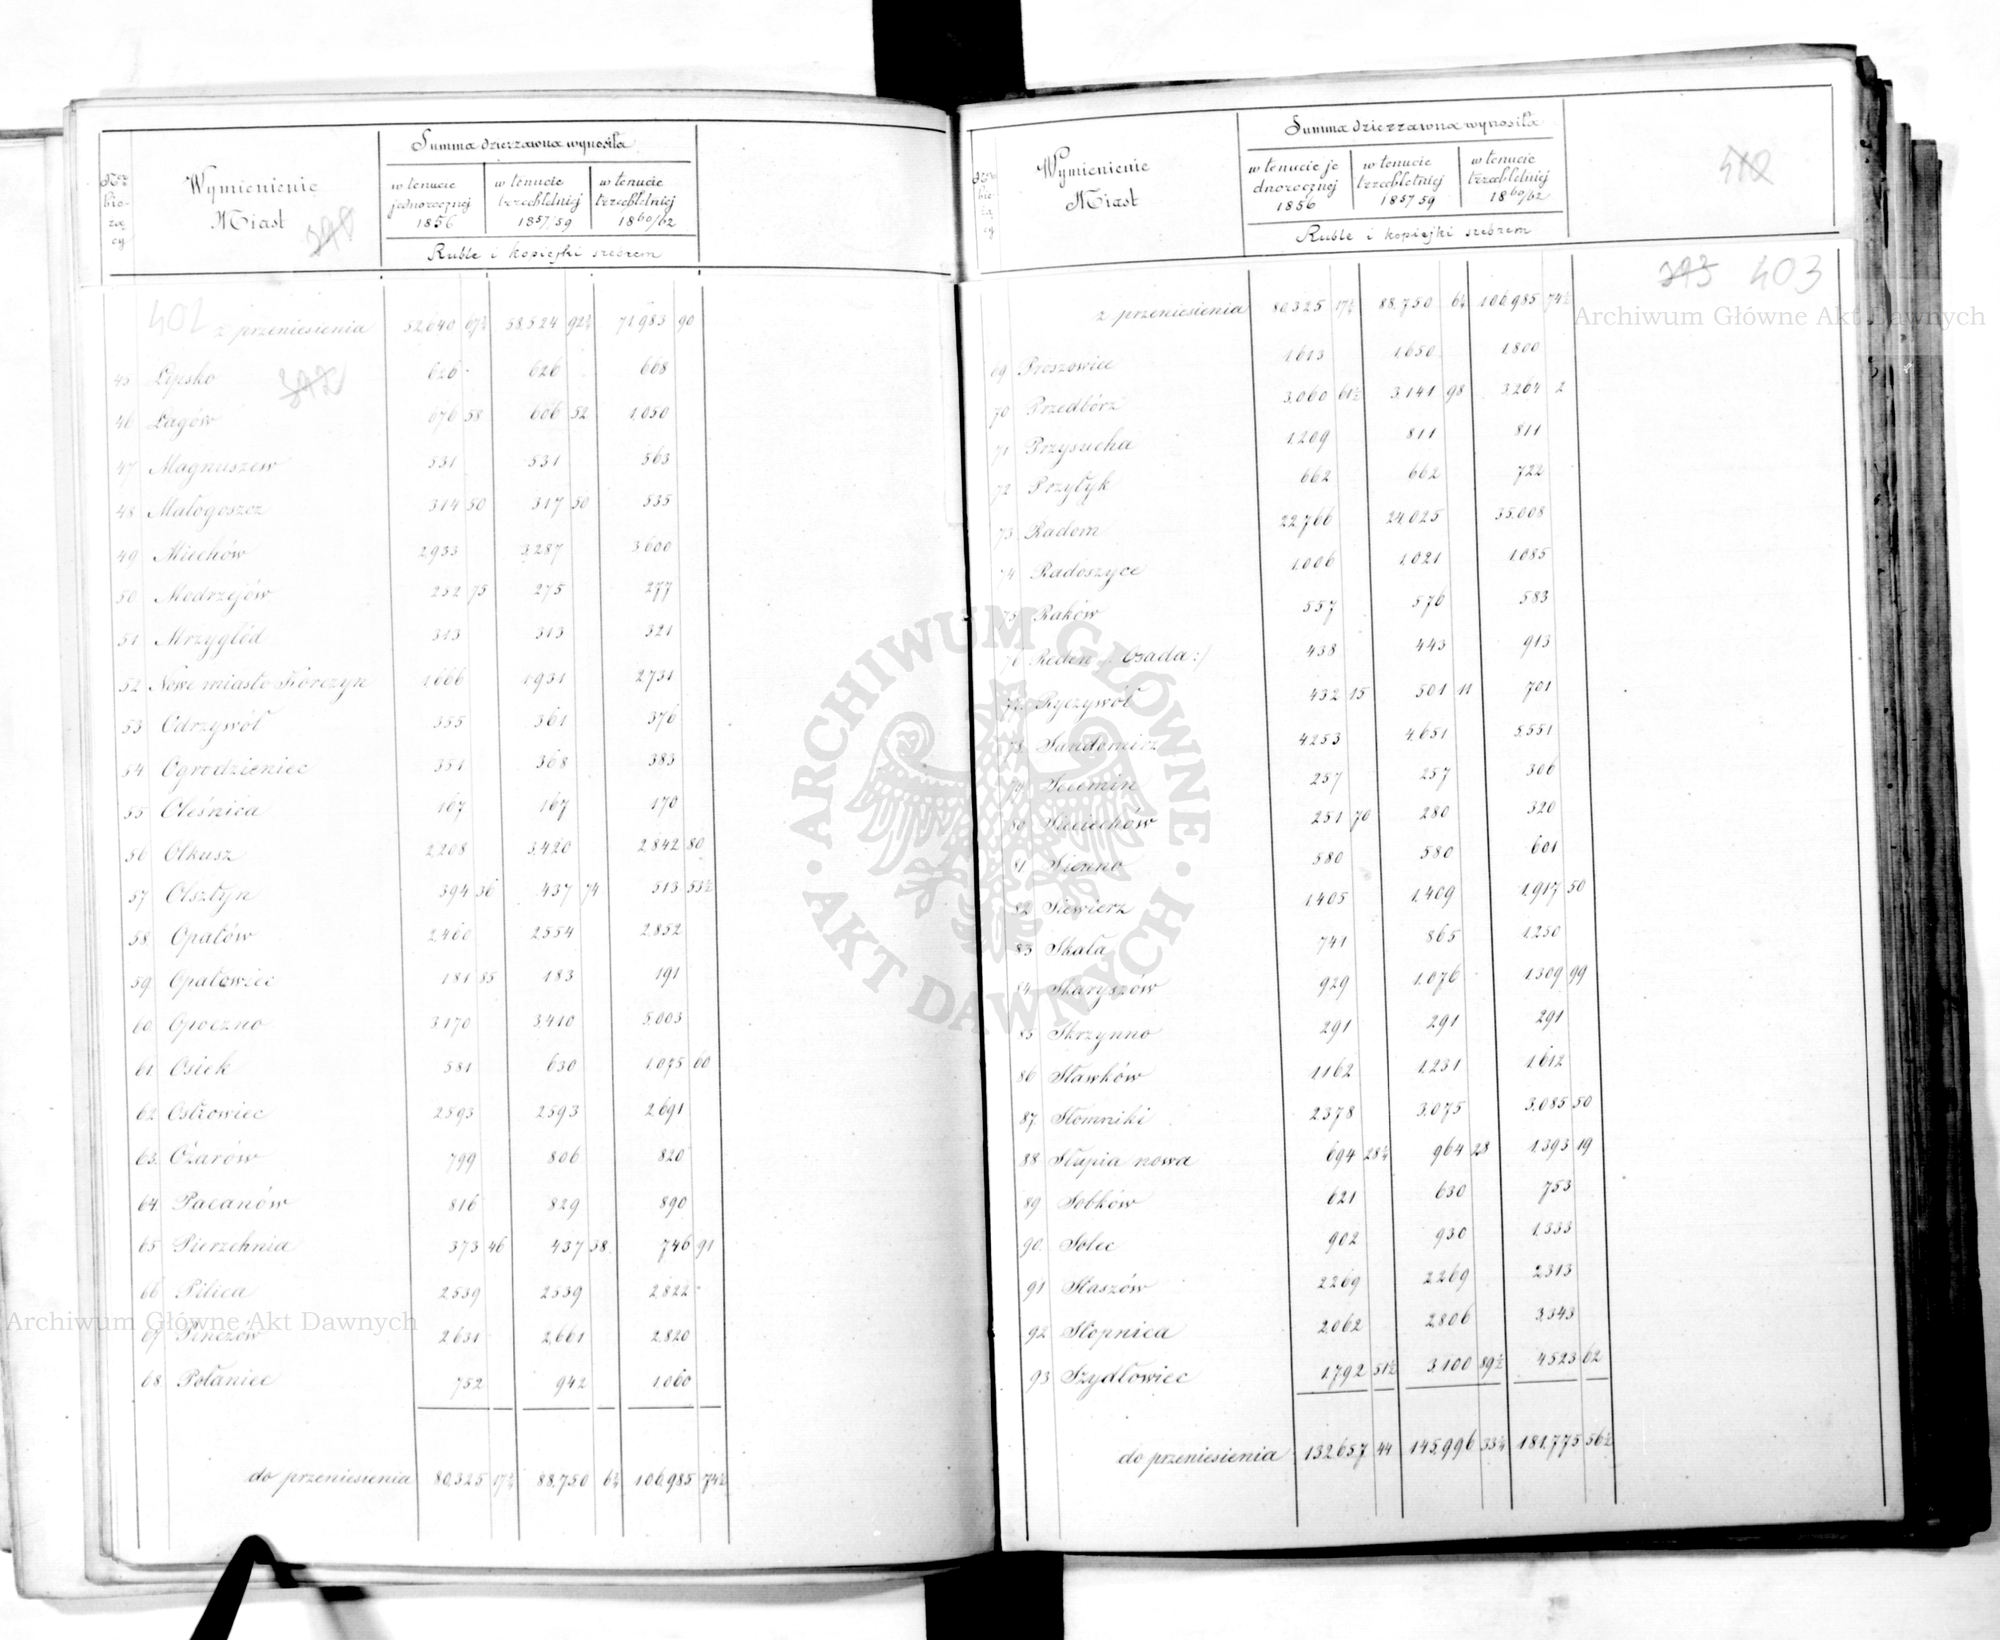 Summa dzierzawna wynosiła
Wymienienie Miast
w tenucie jednorocznej 1856
w tenucie trzechletniej 1857/59
w tenucie trzechletniej 1860/62
Ruble i kopiejki srebrem
402
z przeniesienia 52,640 58,524 71,983 90
45 Lipsko 626 626 668
46 Łagów 676 58 606 52 1,050
47 Magnuszew 531 531 563
48 Małogoszcz 314 50 317 50 535
49 Miechów 2,933 3,287 3,600
50 Modrzejów 252 75 275 277
51 Mrzygłód 313 313 321
52 Nowe miasto Korczyn 1,666 1,931 2,731
53 Odrzywół 355 361 376
54 Ogrodzieniec 351 368 383
55 Oleśnica 167 167 170
56 Olkusz 2,208 3,420 2,842 80
57 Olsztyn 394 36 437 74 513 53½
58 Opatów 2,460 2554 2,852
59 Opatowiec 181 85 183 191
60 Opoczno 3,170 3,410 5,003
61 Osiek 581 630 1,075 60
62 Ostrowiec 2593 2593 2,691
63. Ożarów 799 806 820
64 Pacanów 816 829 890
65 Pierzchnia 373 46 437 38 746 91
66 Pilica 2539 2539 2,822
67 Pinczów 2631 2,661 2,820
68 Połaniec 752 942 1,060
do przeniesienia 80,325 17¾ 88,750 6¾ 106,985 74½
Summa dzierzawna wynosiła
Wymienienie Miast
w tenucie jednorocznej 1856
w tenucie trzechletniej 1857 59
w tenucie trzechletniej 1860/62
Ruble i kopiejki srebrem
403
z przeniesienia 80,325 17¾ 88,750 6¾ 106,985 74½
69 Proszowice 1,613 1,650 1,800
70 Przedbórz 3,060 61½ 3,141 98 3,264 2
71 Przysucha 1,209 811 811
72 Przytyk 662 662 722
73 Radom 22,766 24,025 35,008
74 Radoszyce 1,006 1,021 1,085
75 Raków 557 576 583
76 Reden /: Osada :/ 438 443 913
77 Ryczywół 432 15 501 11 701
78 Sandomirz 4253 4,651 5,551
79 Secemin 257 257 306
80 Sieciechów 251 70 280 320
81 Sienno 580 580 601
82 Siewierz 1,405 1,409 1,917 50
83 Skała 741 865 1,250
84 Skaryszów 929 1,076 1,309 99
85 Skrzynno 291 291 291
86 Sławków 1162 1,231 1,612
87 Słomniki 2378 3,075 3,085 50
88 Słupia nowa 694 964 28 1,393 19
89 Sobków 621 630 753
90. Solec 902 930 1,333
91 Staszów 2269 2269 2313
92 Stopnica 2,062 2,806 3,343
93 Szydłowiec 1,792 51½ 3,100 89½ 4523 62
do przeniesienia 132,657 44 145,996 181,775 56½
Archiwum Główne Akt Dawnych
Archiwum Główne Akt Dawnych
ARCHIWUM GŁÓWNE · AKT DAWNYCH ·